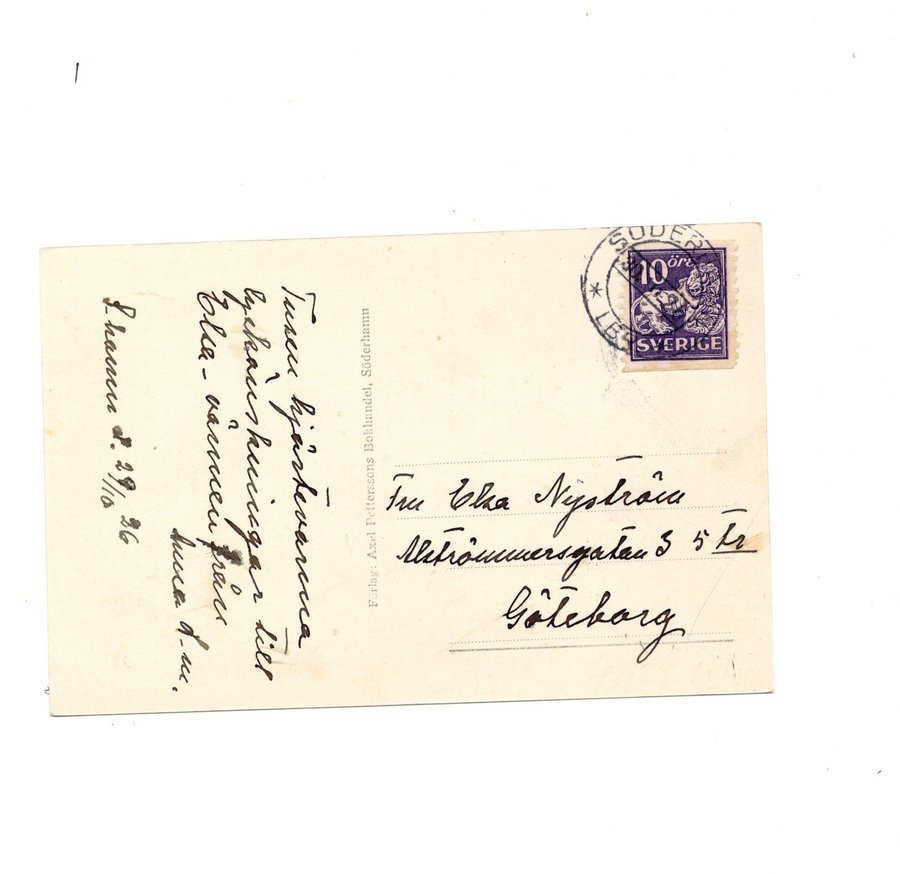 Tusen hjärtevarma
lyckönskningar till
Elsa - vännen från
Anna
S. hamn d. 29/10 26
Förlag: Axel Petterssons Bokhandel, Söderhamn
SÖDER
10 öre
SVERIGE
Fru Elsa Nyström
Alströmmersgatan 3 5 Tr
Göteborg